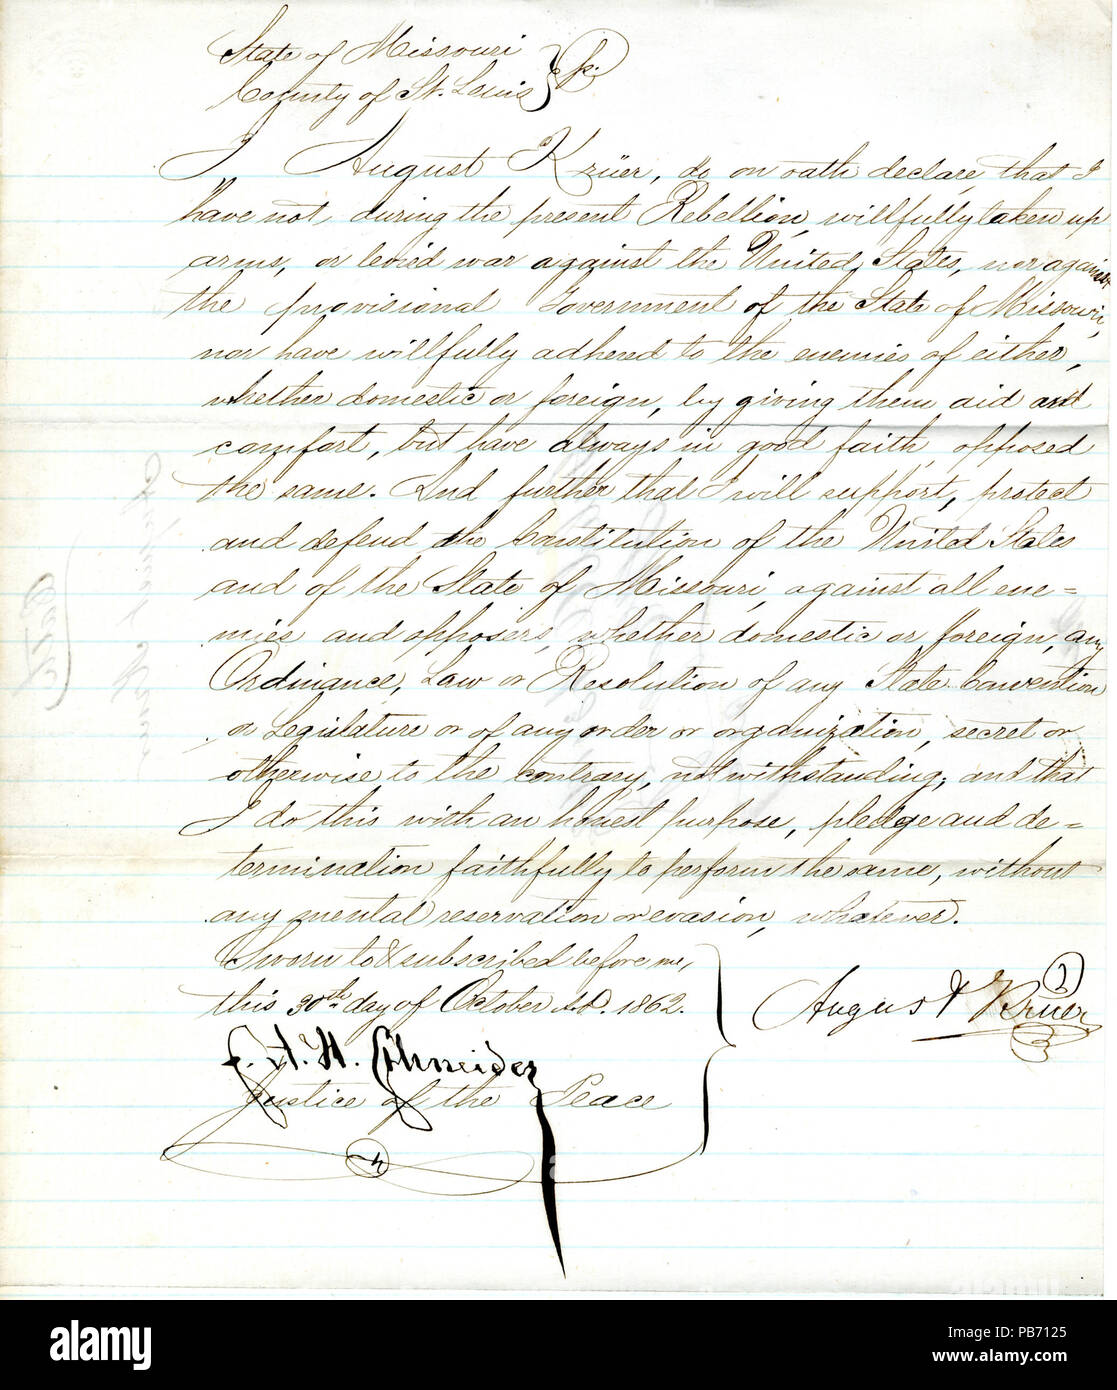 State of Missouri
County of St. Louis
I, August Krüer, do on oath declare, that I
have not, during the present Rebellion, willfully taken up
arms, or levied war against the United States, nor against
the provisional Government of the State of Missouri,
nor have willfully adhered to the enemies of either,
whether domestic or foreign, by giving them aid and
comfort, but have always in good faith, opposed
the same. And further that I will support, protect
and defend the Constitution of the United States
and of the State of Missouri, against all ene=
mies and opposers, whether domestic or foreign, any
Ordinance, Law or Resolution of any State Convention
or Legislature or of any order or organization, secret or
otherwise to the contrary, notwithstanding; and that
I do this with an honest purpose, pledge and de=
termination faithfully to perform the same, without
any mental reservation or evasion, whatever.
Sworn to & subscribed before me,
this 30th day of October A.D. 1862.
August Krüer
A. H. Schneider
Justice of the Peace
alamy
Image ID: PB7125
www.alamy.com